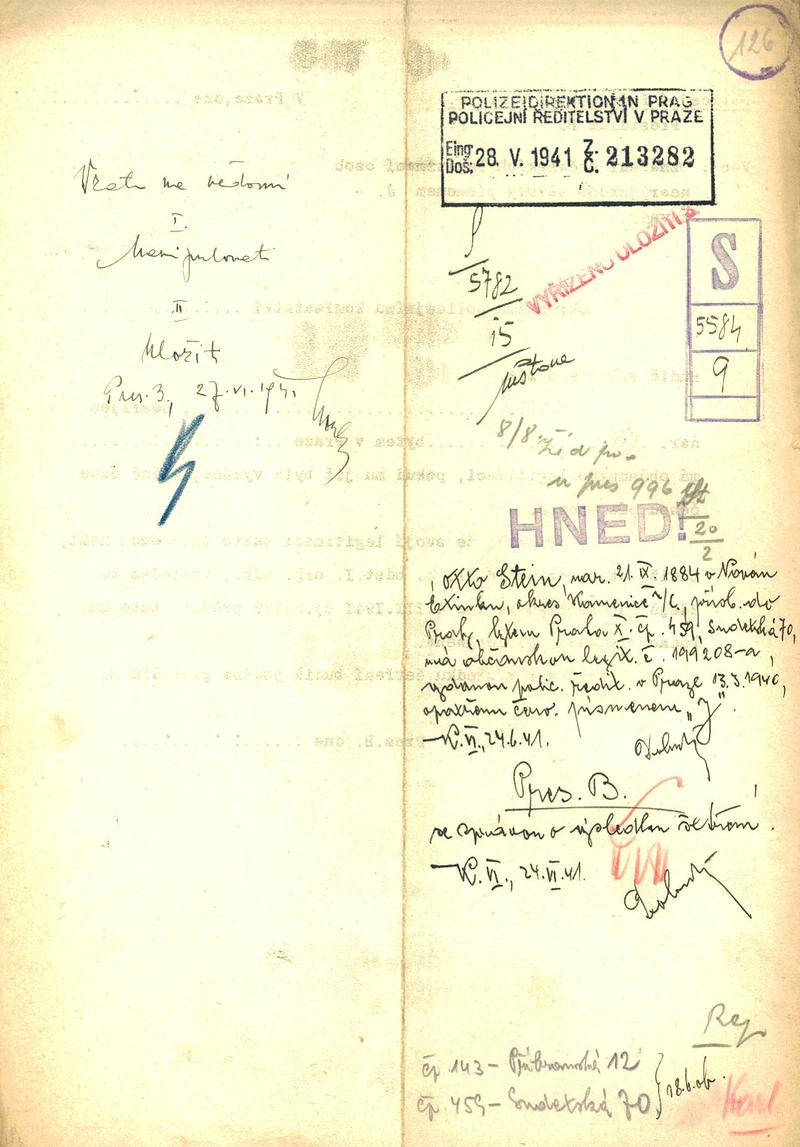 126
POLIZEIDIREKTION IN PRAG
POLICEJNÍ ŘEDITELSTVÍ V PRAZE
Eing.
Doš.
28. V. 1941
Z.
Č.
213282
Vzato na vědomí
I.
Manipulovati
II
Uložit
Pres. 3., 27. VI. 1941
S
5782
15
VYŘÍZENO ULOŽITI
S
5584
9
8/8
Žid
pres 996
20
2
HNED!
Otto Stein, nar. 21. IX. 1884 v Novém
okres Kamenice n/L, přísl. do
Prahy, bytem Praha X. čp. 459, Sudetská 70,
má občanskou legit. č. 199208-a,
vydanou polic. ředit. v Praze 13.3.1940,
opatřenu červ. písmenem „J".
K. VI., 24.6.41.
Pres. B.
se zprávou o výsledku šetření.
K. VI., 24. VI. 41.
Rej
čp. 143 - Příbramská 12
čp. 459 - Sudetská 70
18.6. ob.
Karl